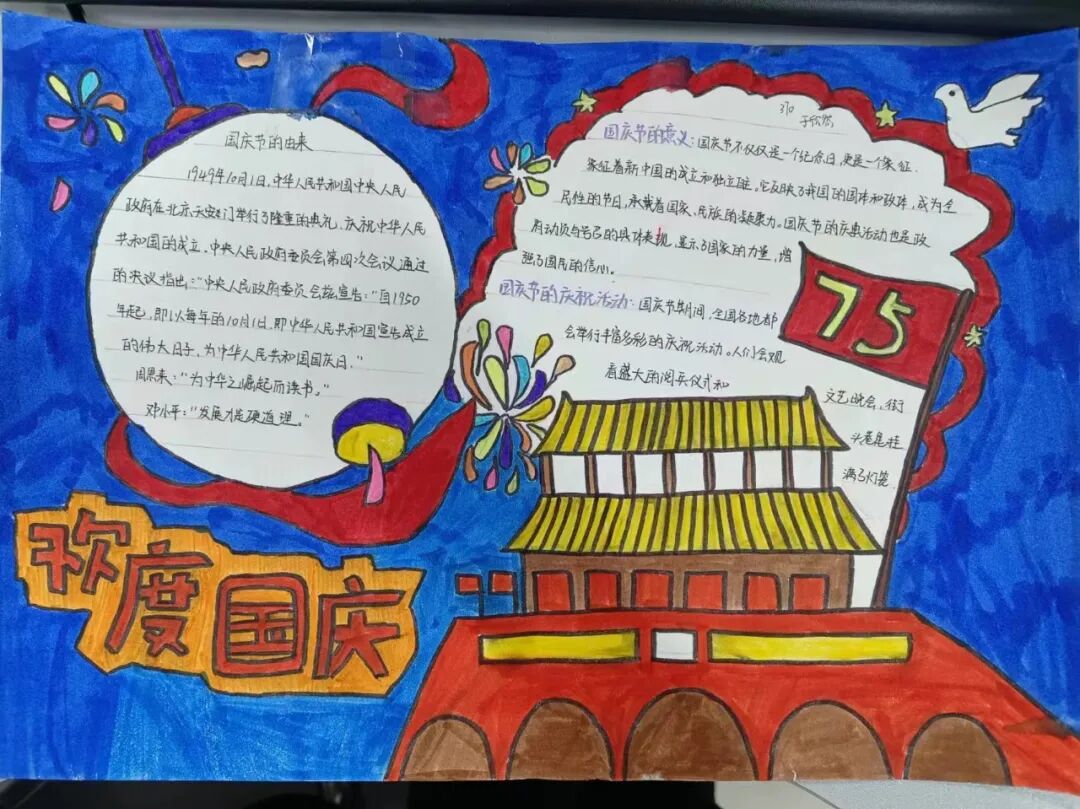 国庆节的由来
1949年10月1日,中华人民共和国中央人民
政府在北京天安门举行了隆重的典礼,庆祝中华人民
共和国的成立。中央人民政府委员会第四次会议通过
的决议指出:“中央人民政府委员会兹宣告:“自1950
年起,即以每年的10月1日,即中华人民共和国宣告成立
的伟大日子,为中华人民共和国国庆日。”
周恩来:“为中华之崛起而读书。”
邓小平:“发展才是硬道理。”
欢度国庆
国庆节的意义:国庆节不仅仅是一个纪念日,更是一个象征.
象征着新中国的成立和独立。它反映了我国的国体和政体,成为全
民性的节日,承载着国家、民族的凝聚力。国庆节的庆典活动也是政
府动员与号召的具体表现,显示了国家的力量,增
强了国民的信心。
国庆节的庆祝活动:国庆节期间,全国各地都
会举行丰富多彩的庆祝活动。人们会观
看盛大的阅兵仪式和
文艺晚会,街
头巷尾挂
满了灯笼.
75